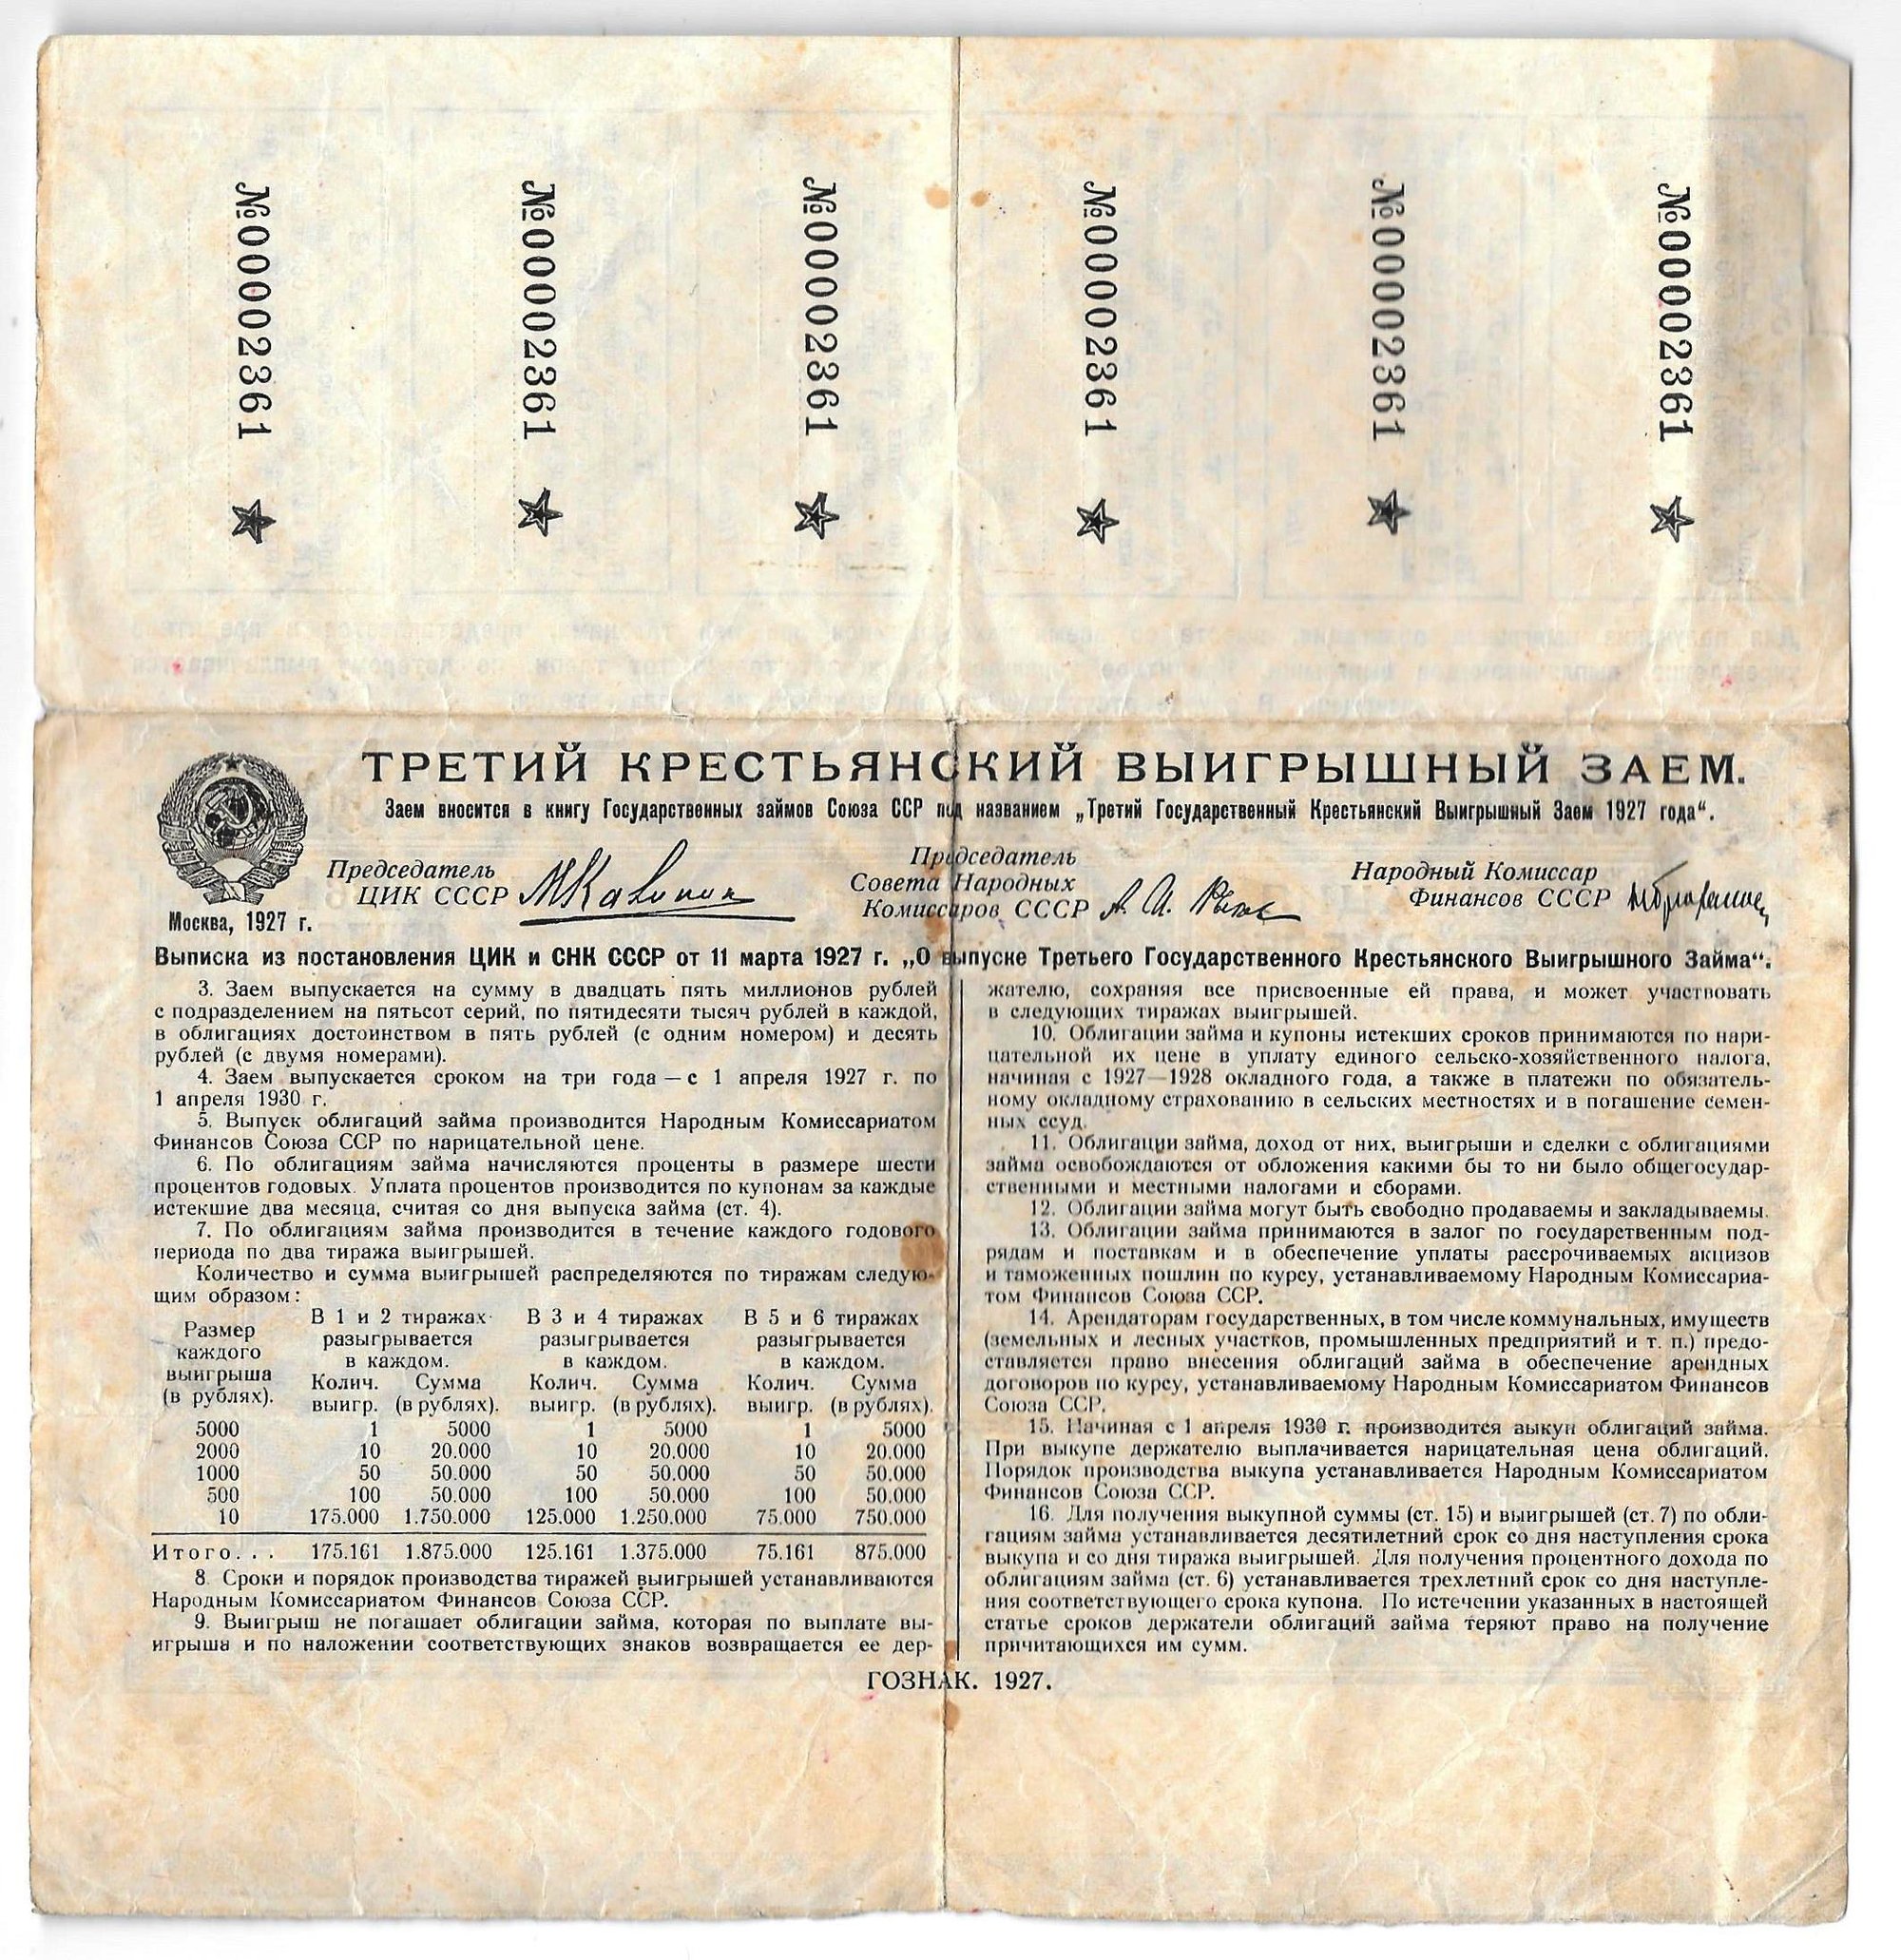 №000002361
№000002361
№000002361
№000002361
№000002361
№000002361
ТРЕТИЙ КРЕСТЬЯНСКИЙ ВЫИГРЫШНЫЙ ЗАЕМ.
Заем вносится в книгу Государственных займов Союза ССР под названием „Третий Государственный Крестьянский Выигрышный Заем 1927 года“.
Председатель
ЦИК СССР
Председатель
Совета Народных
Комиссаров СССР
Народный Комиссар
Финансов СССР
Москва, 1927 г.
Выписка из постановления ЦИК и СНК СССР от 11 марта 1927 г. „О выпуске Третьего Государственного Крестьянского Выигрышного Займа“.
3. Заем выпускается на сумму в двадцать пять миллионов рублей
с подразделением на пятьсот серий, по пятидесяти тысяч рублей в каждой,
в облигациях достоинством в пять рублей (с одним номером) и десять
рублей (с двумя номерами).
4. Заем выпускается сроком на три года — с 1 апреля 1927 г. по
1 апреля 1930 г.
5. Выпуск облигаций займа производится Народным Комиссариатом
Финансов Союза ССР по нарицательной цене.
6. По облигациям займа начисляются проценты в размере шести
процентов годовых. Уплата процентов производится по купонам за каждые
истекшие два месяца, считая со дня выпуска займа (ст. 4).
7. По облигациям займа производится в течение каждого годового
периода по два тиража выигрышей.
Количество и сумма выигрышей распределяются по тиражам следую-
щим образом:
Размер
каждого
выигрыша
(в рублях).
В 1 и 2 тиражах
разыгрывается
в каждом.
В 3 и 4 тиражах
разыгрывается
в каждом.
В 5 и 6 тиражах
разыгрывается
в каждом.
Колич. Сумма Колич. Сумма Колич. Сумма
выигр. (в рублях). выигр. (в рублях). выигр. (в рублях).
5000 1 5000 1 5000 1 5000
2000 10 20.000 10 20.000 10 20.000
1000 50 50.000 50 50.000 50 50.000
500 100 50.000 100 50.000 100 50.000
10 175.000 1.750.000 125.000 1.250.000 75.000 750.000
Итого... 175.161 1.875.000 125.161 1.375.000 75.161 875.000
8. Сроки и порядок производства тиражей выигрышей устанавливаются
Народным Комиссариатом Финансов Союза ССР.
9. Выигрыш не погашает облигации займа, которая по выплате вы-
игрыша и по наложении соответствующих знаков возвращается ее дер-
жателю, сохраняя все присвоенные ей права, и может участвовать
в следующих тиражах выигрышей.
10. Облигации займа и купоны истекших сроков принимаются по нари-
цательной их цене в уплату единого сельско-хозяйственного налога,
начиная с 1927—1928 окладного года, а также в платежи по обязатель-
ному окладному страхованию в сельских местностях и в погашение семен-
ных ссуд.
11. Облигации займа, доход от них, выигрыши и сделки с облигациями
займа освобождаются от обложения какими бы то ни было общегосудар-
ственными и местными налогами и сборами.
12. Облигации займа могут быть свободно продаваемы и закладываемы.
13. Облигации займа принимаются в залог по государственным под-
рядам и поставкам и в обеспечение уплаты рассрочиваемых акцизов
и таможенных пошлин по курсу, устанавливаемому Народным Комиссариа-
том Финансов Союза ССР.
14. Арендаторам государственных, в том числе коммунальных, имуществ
(земельных и лесных участков, промышленных предприятий и т. п.) предо-
ставляется право внесения облигаций займа в обеспечение арендных
договоров по курсу, устанавливаемому Народным Комиссариатом Финансов
Союза ССР.
15. Начиная с 1 апреля 1930 г. производится выкуп облигаций займа.
При выкупе держателю выплачивается нарицательная цена облигаций.
Порядок производства выкупа устанавливается Народным Комиссариатом
Финансов Союза ССР.
16. Для получения выкупной суммы (ст. 15) и выигрышей (ст. 7) по обли-
гациям займа устанавливается десятилетний срок со дня наступления срока
выкупа и со дня тиража выигрышей. Для получения процентного дохода по
облигациям займа (ст. 6) устанавливается трехлетний срок со дня наступле-
ния соответствующего срока купона. По истечении указанных в настоящей
статье сроков держатели облигаций займа теряют право на получение
причитающихся им сумм.
ГОЗНАК. 1927.